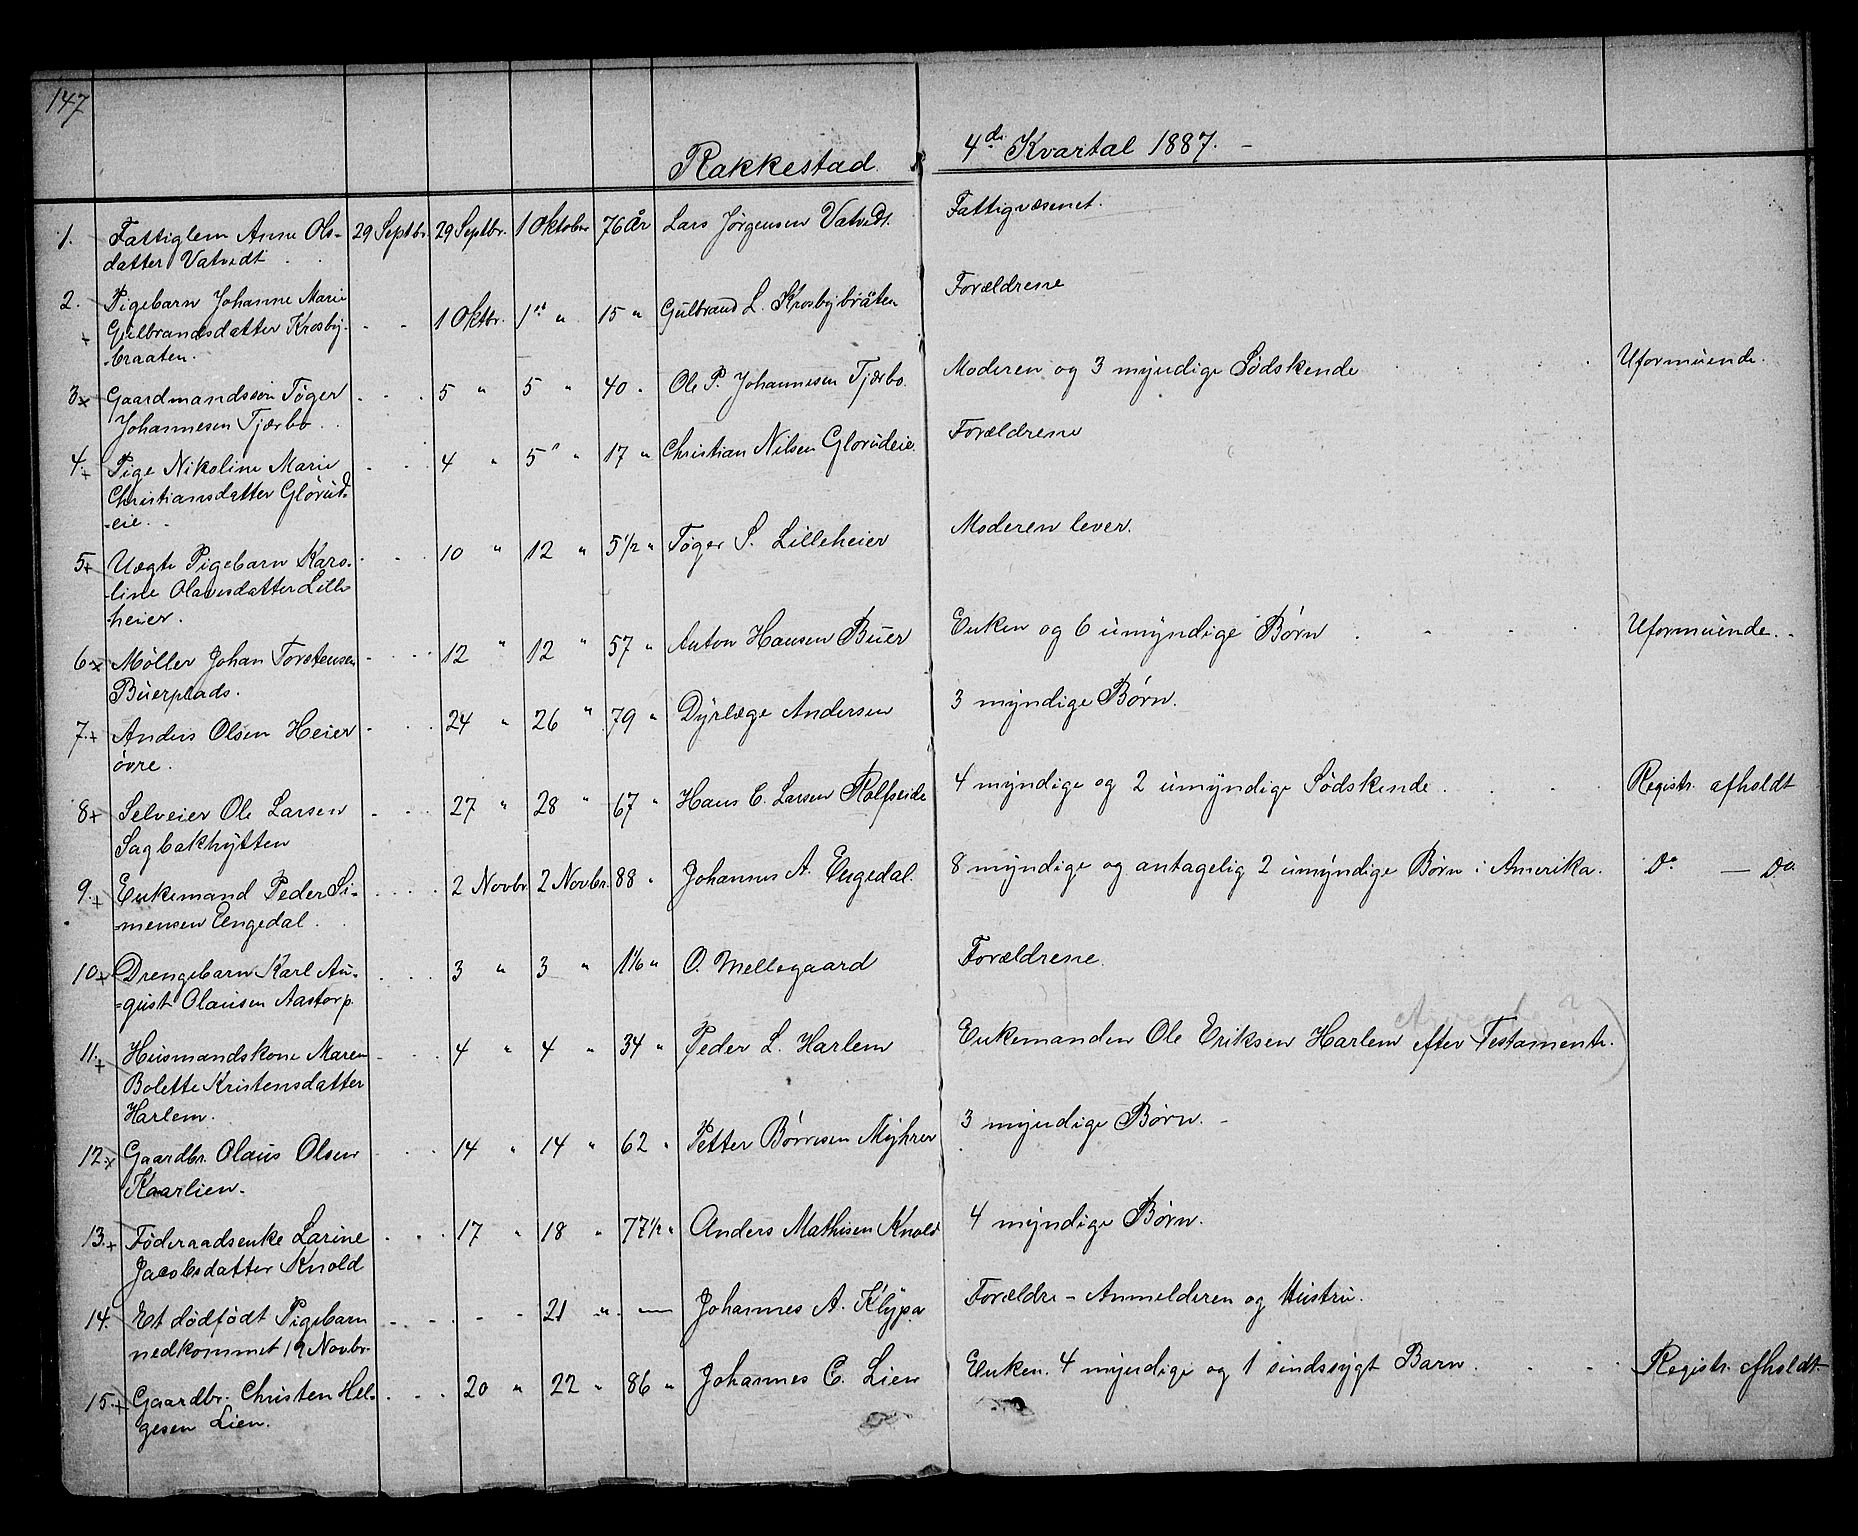 147
Rakkestad 4de Kvartal 1887. -
1. Fattiglem Anne Ols- 29 Septbr. 29 Septbr. 1 Oktober 76 År Lars Jørgensen Vatvedt. Fattigvæsenet.
datter Vatvedt
2. Pigebarn Johanne Marie
+ Gulbrandsdatter Krosby- 1 Oktbr. 1st " 15 " Gulbrand L. Krosbybråten Forældrene
-braaten.
3 x Gaardmandssøn Tøger 5 " 5 " 40 " Ole P. Johannesen Tjærbo. Moderen og 3 myndige Sødskende Uformuende.
Johannesen Tjærbo
4. + Pige Nikoline Marie 4 " 5 " 17 " Christian Nilsen Glorudeie. Forældrene
Christiansdatter Glorud-
-eie.
5 + Uægte Pigebarn Karo- 10 " 12 " 5 1/2 " Tøger S. Lilleheier Moderen lever.
-line Olavesdatter Lille
-heier.
6 x Møller Johan Torstensen 12 " 12 " 57 " Anton Hansen Buer Enken og 6 umyndige Børn Uformuende.
Buerplads.
7. + Anders Olsen Heier 24 " 26 " 79 " Dyrlæge Andersen 3 myndige Børn.
øvre.
8 + Selveier Ole Larsen 27 " 28 " 67 " Hans C. Larsen Rolfseide 4 myndige og 2 umyndige Sødskende Registr. afholdt
Sagbakhytten
9. + Enkemand Peder Si- 2 Novbr. 2 Novbr. 88 " Johannes A. Engedal. 8 myndige og antagelig 2 umyndige Børn i Amerika. Do — Do
-mensen Engedal.
10 + Drengebarn Karl Au- 3 " 3 " 1 1/6 " O. Mellegaard Forældrene.
-gust Olausen Aastorp.
11. + Husmandskone Maren 4 " 4 " 34 " Peder L. Harlem Enkemanden Ole Eriksen Harlem efter Testamente.
Bolette Kristensdatter
Harlem.
12. x Gaardbr. Olaus Olsen 14 " 14 " 62 " Petter Børresen Myhrer 3 myndige Børn. -
Kaarlien.
13. + Føderaadsenke Larine 17 " 18 " 77 1/2 " Anders Mathisen Knold 4 myndige Børn.
Jacobsdatter Knold
14. Et dødfødt Pigebarn 21 " — Johannes A. Klypa Forældre - Anmelderen og Hustru.
nedkommet 19 Novbr.
15. + Gaardbr. Christen Hel- 20 " 22 " 86 " Johannes C. Lien Enken. 4 myndige og 1 sindssygt Barn. Registr. afholdt
gesen Lien.